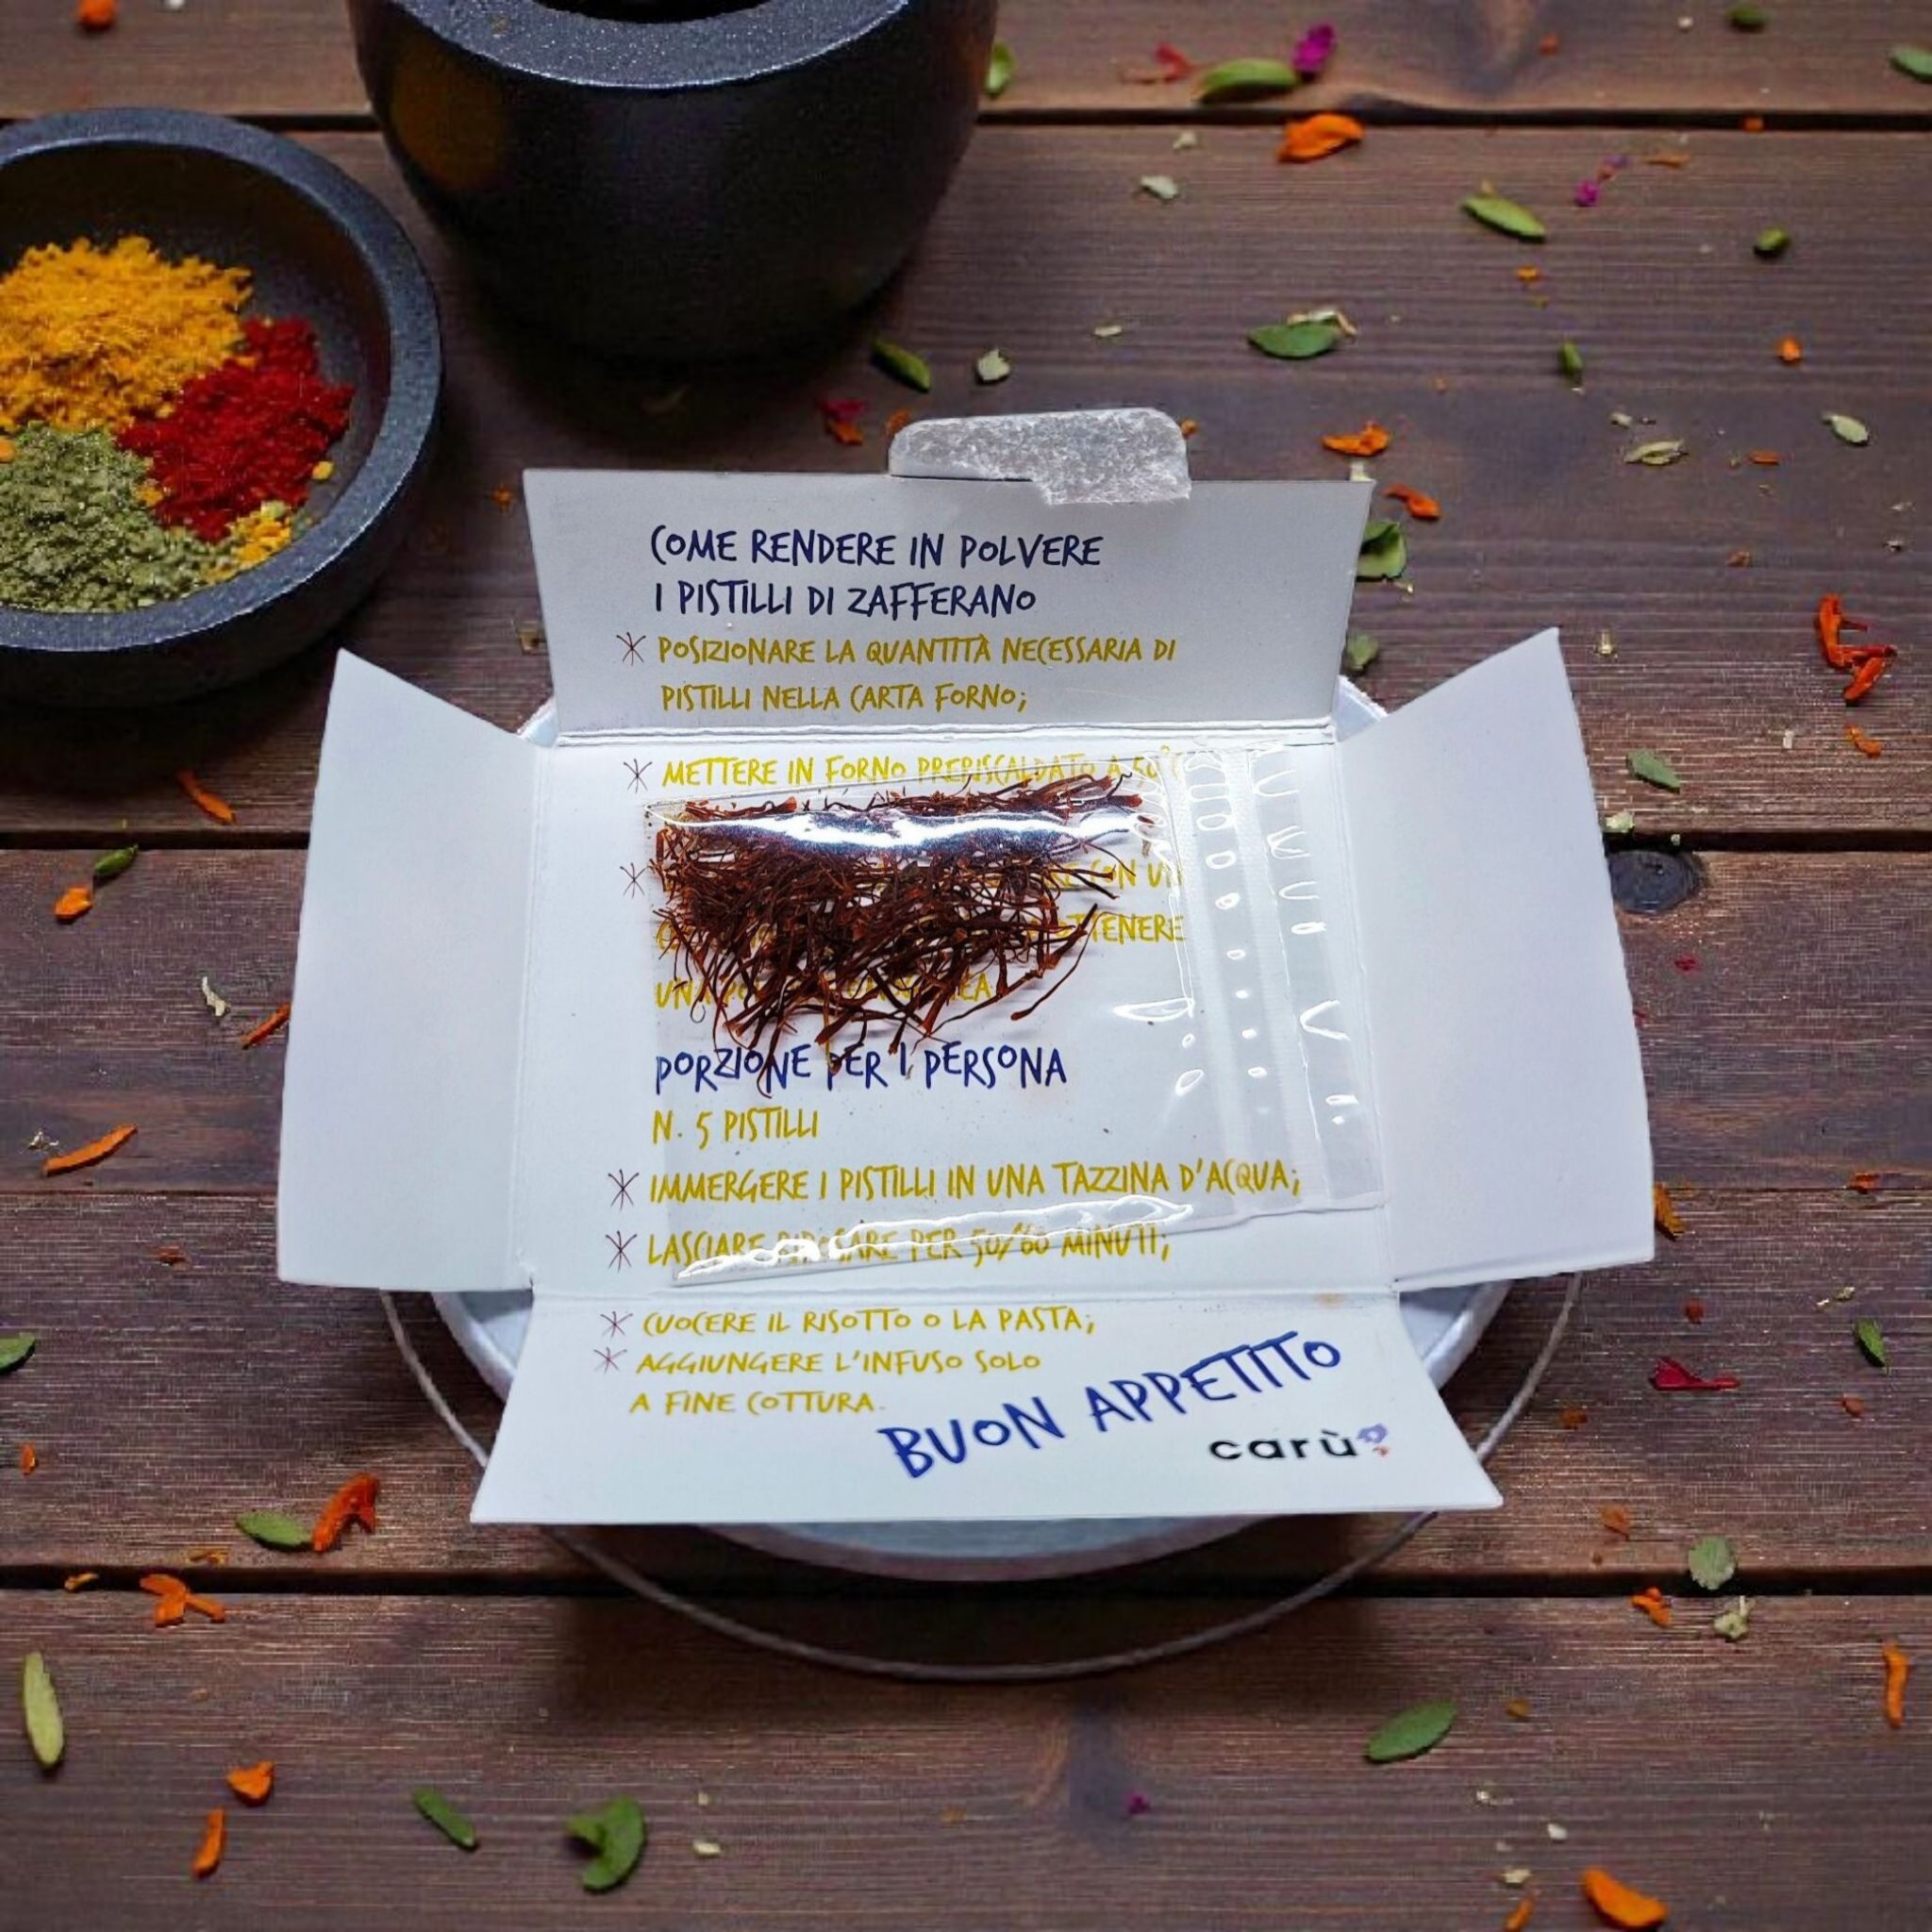 COME RENDERE IN POLVERE
I PISTILLI DI ZAFFERANO
POSIZIONARE LA QUANTITÀ NECESSARIA DI
PISTILLI NELLA CARTA FORNO;
METTERE IN FORNO PRERISCALDATO A 50°C
CON UN
OTTENERE
PORZIONE PER 1 PERSONA
N. 5 PISTILLI
IMMERGERE I PISTILLI IN UNA TAZZINA D'ACQUA;
LASCIARE RIPOSARE PER 50/60 MINUTI;
CUOCERE IL RISOTTO O LA PASTA;
AGGIUNGERE L'INFUSO SOLO
A FINE COTTURA.
BUON APPETITO
carù